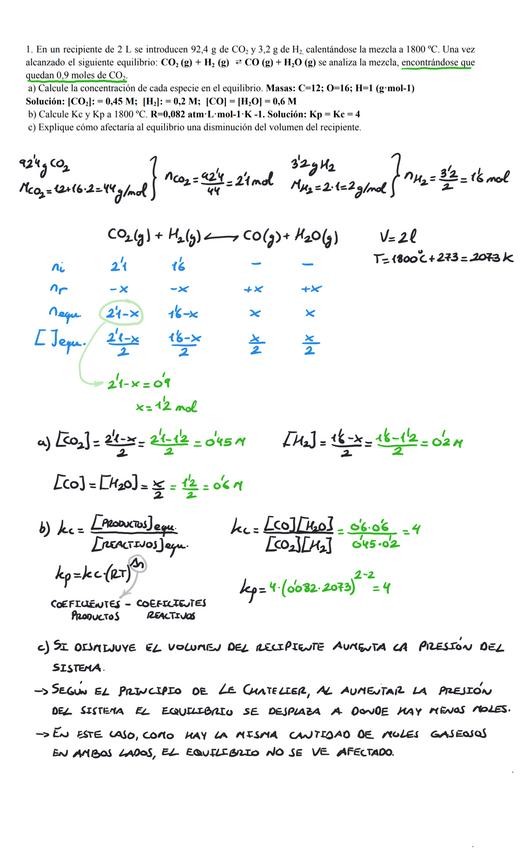 1. En un recipiente de 2 L se introducen 92,4 g de CO₂ y 3,2 g de H₂, calentándose la mezcla a 1800 ºC. Una vez
alcanzado el siguiente equilibrio: CO₂ (g) + H₂ (g) ⇌ CO (g) + H₂O (g) se analiza la mezcla, encontrándose que
quedan 0,9 moles de CO₂.
a) Calcule la concentración de cada especie en el equilibrio. Masas: C=12; O=16; H=1 (g·mol-1)
Solución: [CO₂]: = 0,45 M, [H₂]: = 0,2 M; [CO] = [H₂O] = 0,6 M
b) Calcule Kc y Kp a 1800 ºC. R=0,082 atm·L·mol-1·K -1. Solución: Kp = Kc = 4
c) Explique cómo afectaría al equilibrio una disminución del volumen del recipiente.
92'4 g CO₂
MCO₂=12+16·2=44 g/mol } nCO₂ = 92'4/44 = 2'1 mol
3'2 g H₂
MH₂=2·1=2 g/mol } nH₂ = 3'2/2 = 1'6 mol
CO₂(g) + H₂(g) ⟷ CO(g) + H₂O(g)
V = 2l
T = 1800°C + 273 = 2073 K
ni 2'1 1'6 – –
nr -x -x +x +x
nequ 2'1-x 1'6-x x x
[ ]equ. (2'1-x)/2 (1'6-x)/2 x/2 x/2
2'1-x = 0'9
x = 1'2 mol
a) [CO₂] = (2'1-x)/2 = (2'1-1'2)/2 = 0'45 M [H₂] = (1'6-x)/2 = (1'6-1'2)/2 = 0'2 M
[CO] = [H₂O] = x/2 = 1'2/2 = 0'6 M
b) Kc = [PRODUCTOS]equ. / [REACTIVOS]equ. Kc = [CO][H₂O] / [CO₂][H₂] = 0'6·0'6 / 0'45·0'2 = 4
Kp = Kc·(RT)^Δn Kp = 4·(0'082·2073)^2-2 = 4
COEFICIENTES – COEFICIENTES
PRODUCTOS REACTIVOS
c) SI DISMINUYE EL VOLUMEN DEL RECIPIENTE AUMENTA LA PRESIÓN DEL
SISTEMA.
→ SEGÚN EL PRINCIPIO DE LE CHATELIER, AL AUMENTAR LA PRESIÓN
DEL SISTEMA EL EQUILIBRIO SE DESPLAZA A DONDE HAY MENOS MOLES.
→ EN ESTE CASO, COMO HAY LA MISMA CANTIDAD DE MOLES GASEOSOS
EN AMBOS LADOS, EL EQUILIBRIO NO SE VE AFECTADO.